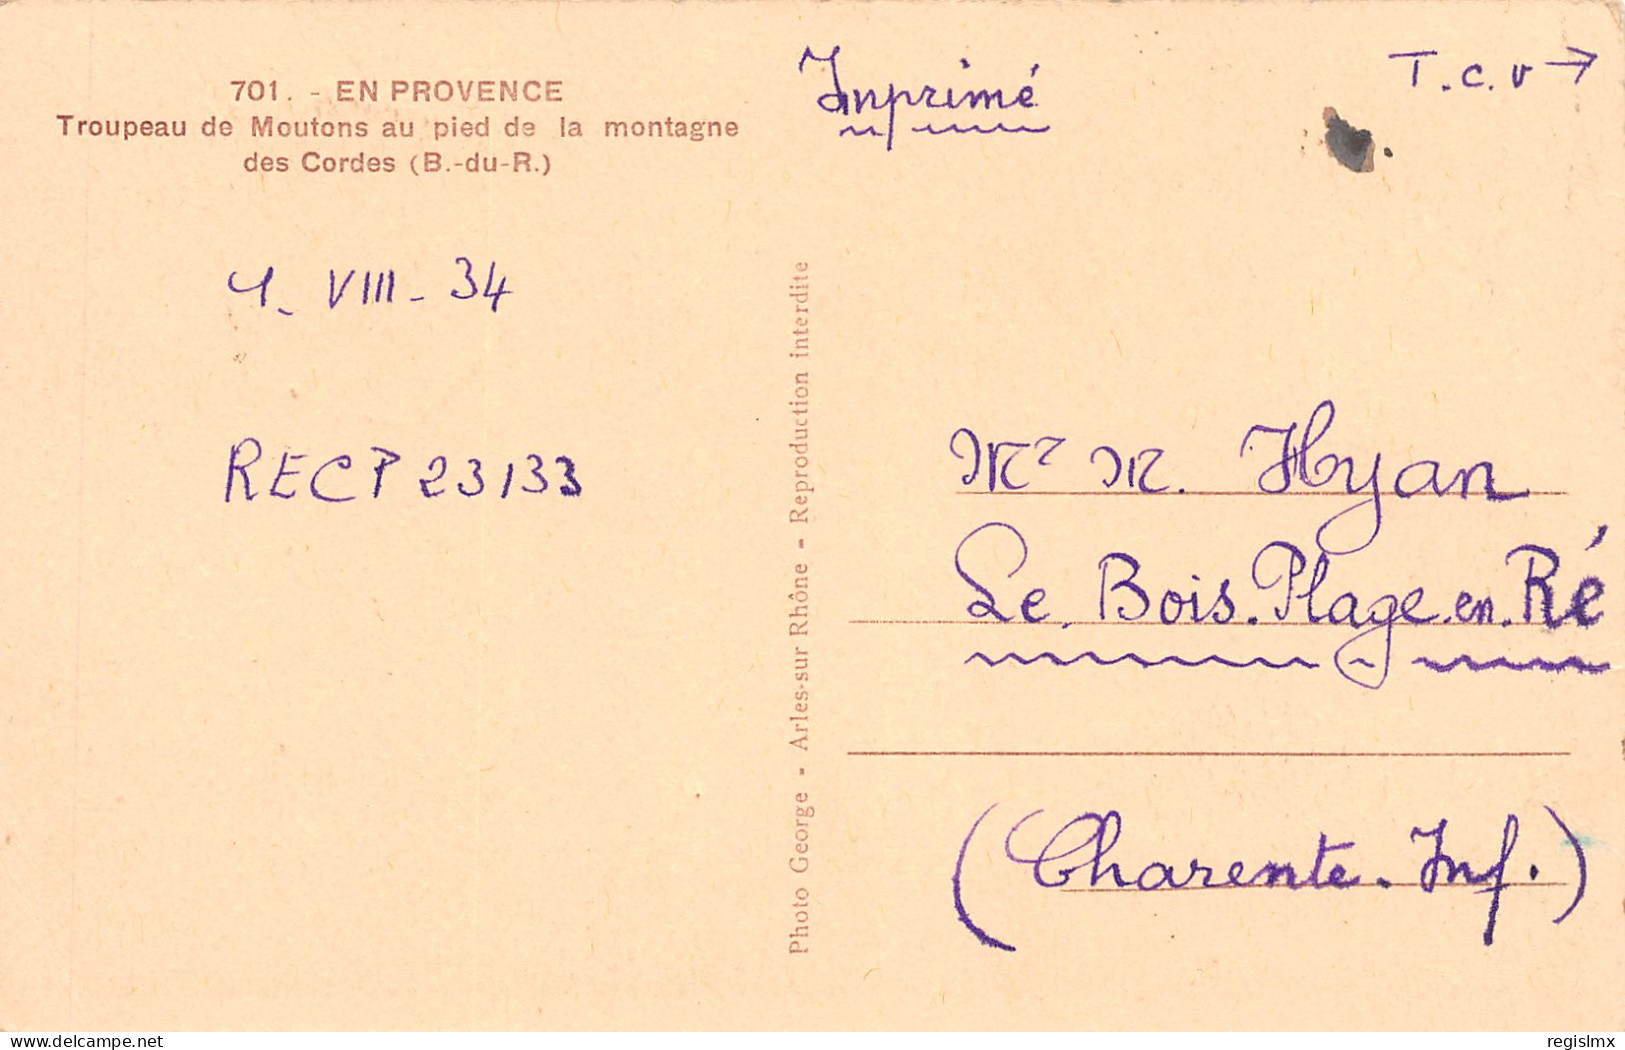 701. - EN PROVENCE
Troupeau de Moutons au pied de la montagne
des Cordes (B.-du-R.)
Imprimé
T.C.V →
4. VIII - 34
RECP 23133
Photo George - Arles-sur Rhône - Reproduction interdite
Mr M. Hyan
Le. Bois. Plage.en.Ré
(Charente. Inf.)
delcampe.net
regislmx